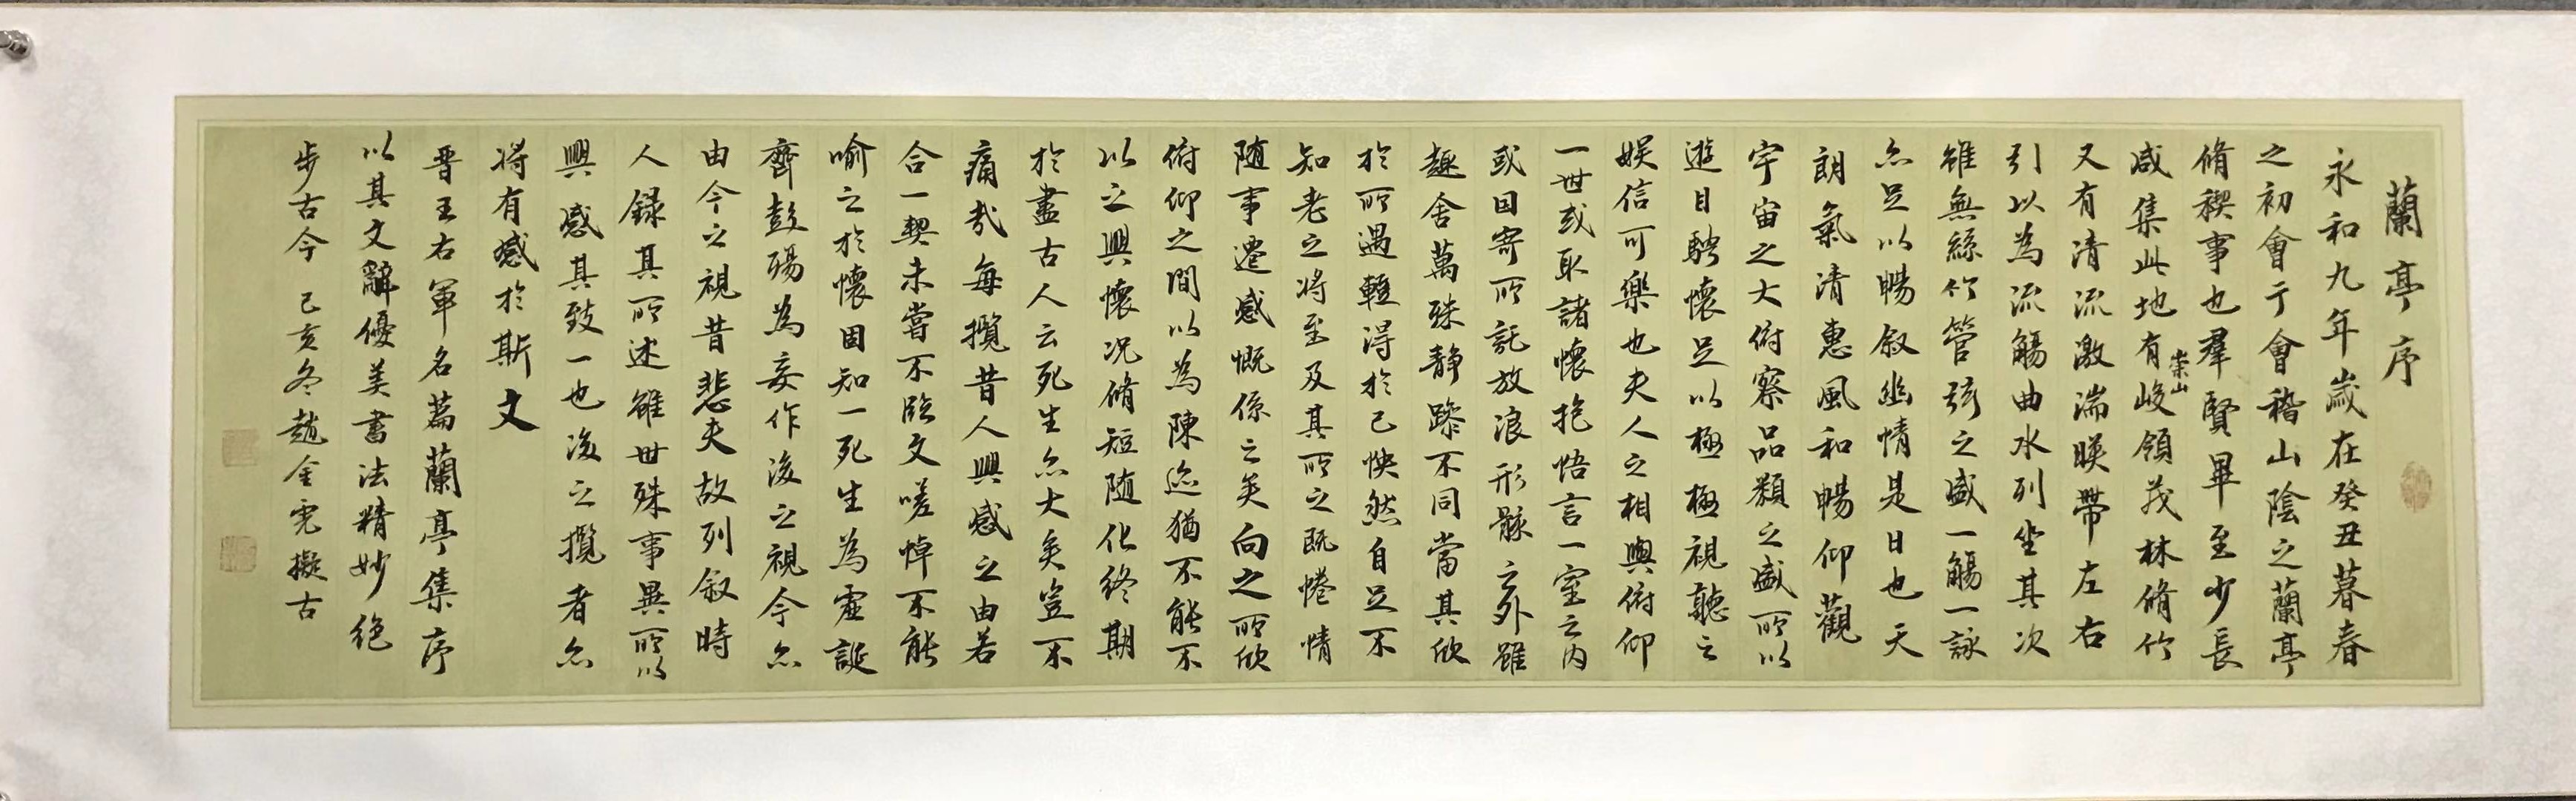 蘭亭序
永和九年歲在癸丑暮春
之初會于會稽山陰之蘭亭
脩稧事也羣賢畢至少長
咸集此地有崇山峻領茂林脩竹
又有清流激湍暎帶左右
引以為流觴曲水列坐其次
雖無絲竹管弦之盛一觴一詠
亦足以暢叙幽情是日也天
朗氣清惠風和暢仰觀
宇宙之大俯察品類之盛所以
遊目騁懷足以極極視聽之
娛信可樂也夫人之相與俯仰
一世或取諸懷抱悟言一室之內
或因寄所託放浪形骸之外雖
趣舍萬殊静躁不同當其欣
於所遇蹔得於己怏然自足不
知老之將至及其所之既惓情
随事遷感慨係之矣向之所欣
俯仰之間以為陳迹猶不能不
以之興懷况脩短随化終期
於盡古人云死生亦大矣豈不
痛哉每攬昔人興感之由若
合一契未嘗不臨文嗟悼不能
喻之於懷固知一死生為虛誕
齊彭殤為妄作後之視今亦
由今之視昔悲夫故列叙時
人録其所述雖世殊事異所以
興感其致一也後之攬者亦
將有感於斯文
晋王右軍名篇蘭亭集序
以其文辭優美書法精妙絶
步古今 己亥冬趙金完擬古